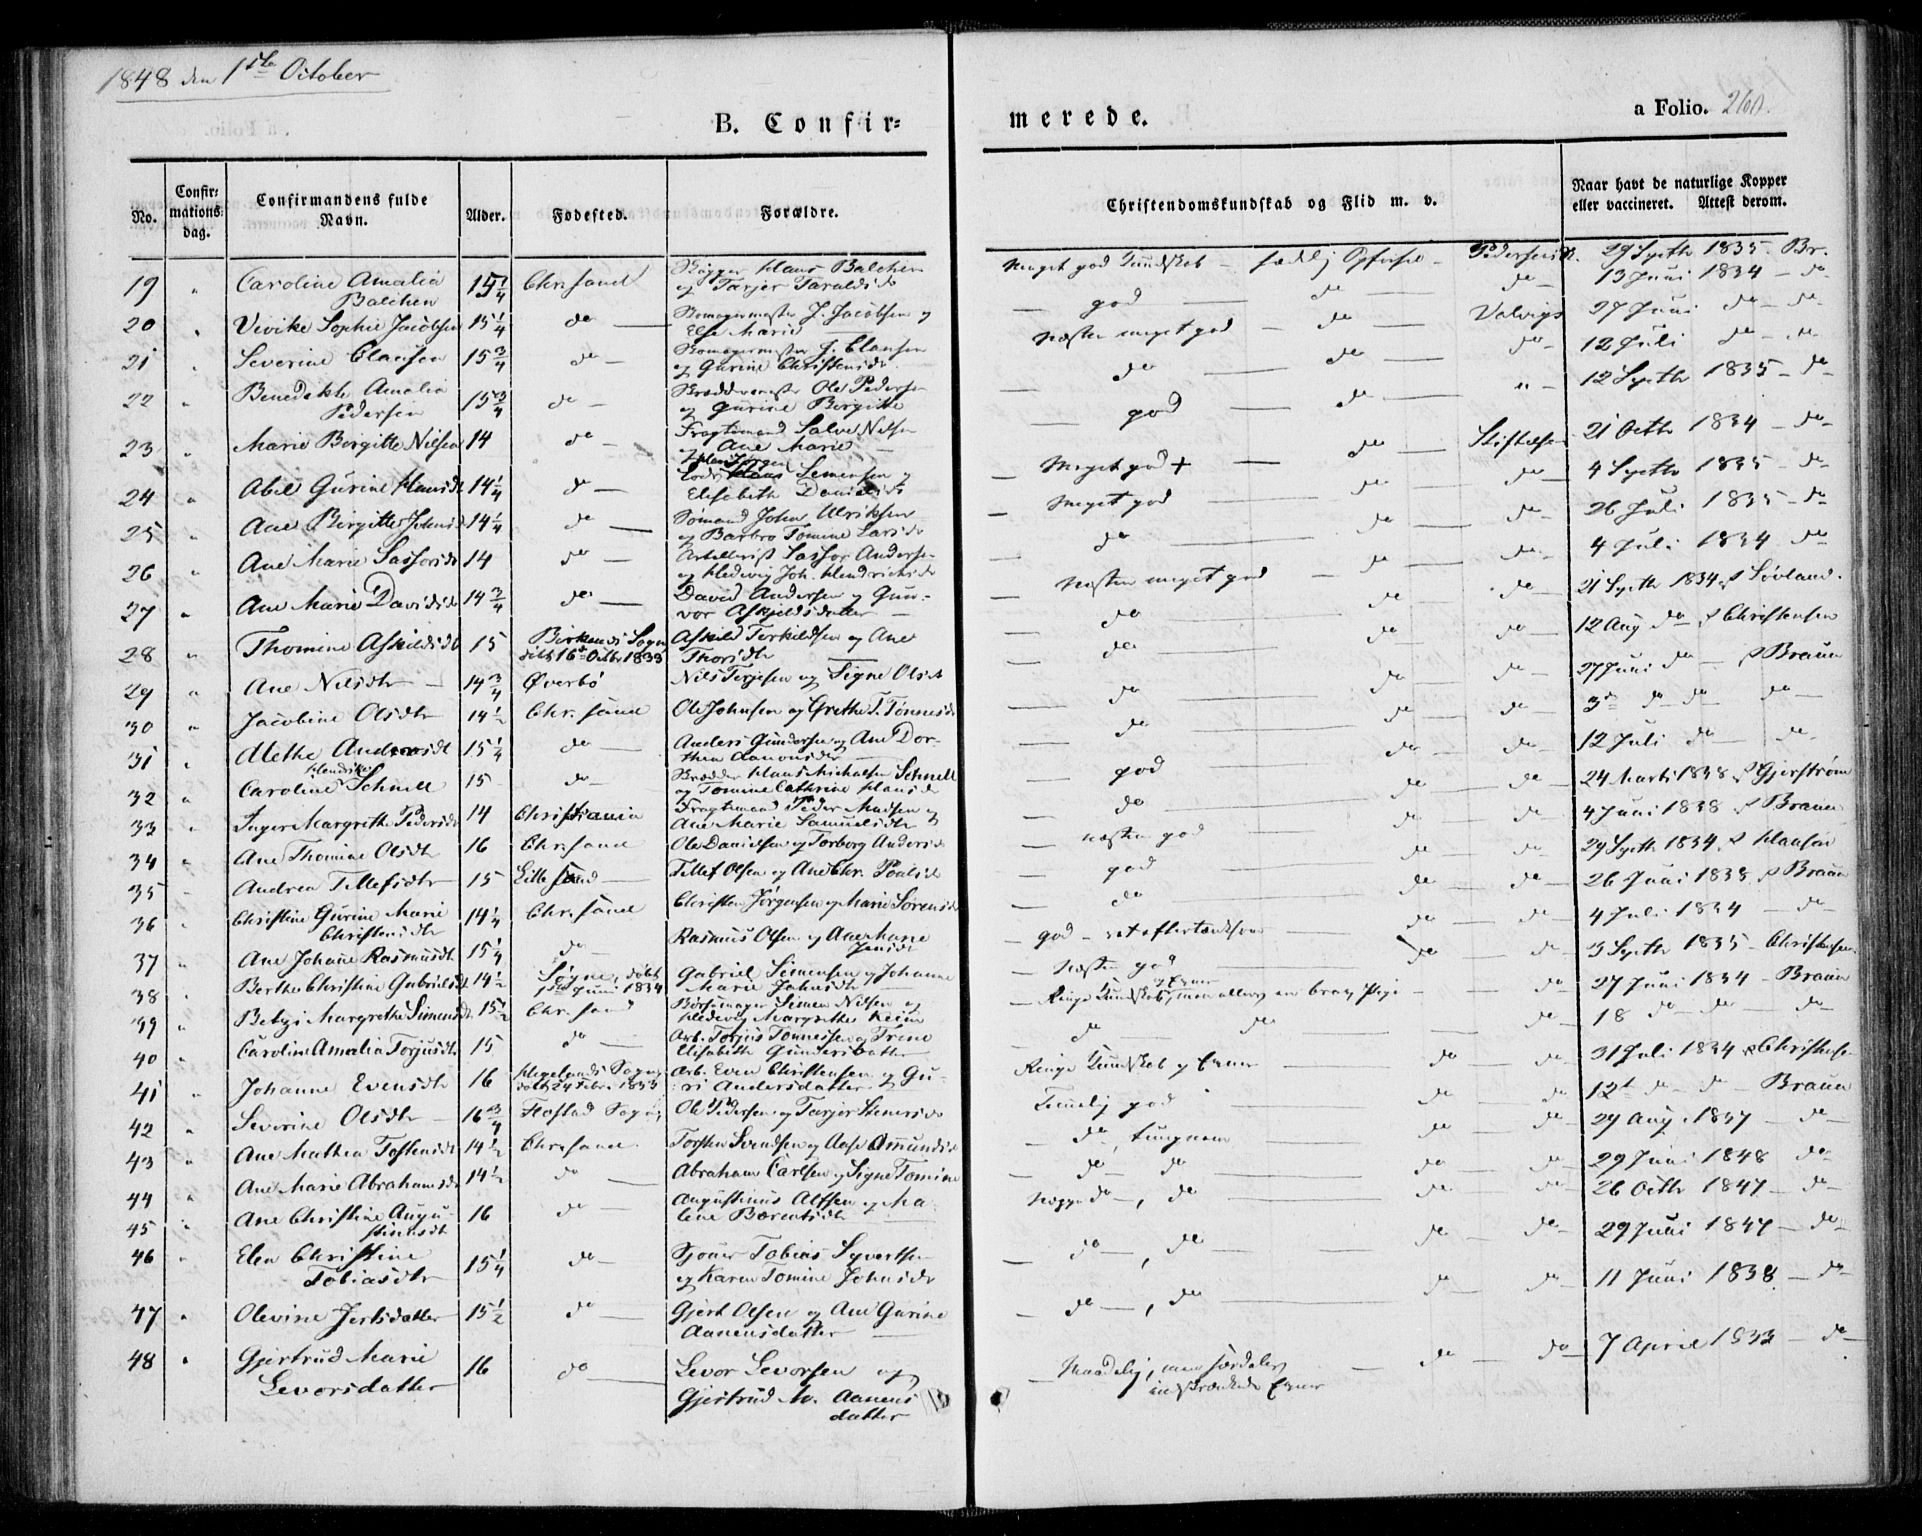 1848 den 1ste October
B. Confir=
merede.
a Folio. 260.
No.
Confir=
mations=
dag.
Confirmandens fulde
Navn.
Alder.
Fødested.
Forældre.
Christendomskundskab og Flid m. v.
Naar havt de naturlige Kopper
eller vaccineret. Attest derom.
19 " Caroline Amalia Balchen 15 1/4 Chr.sand Klaus Balchen og Tarjer Taraldsd. Meget god Kundskab 29 Septb 1835. Br.
20 " Vivike Sophie Jacobsen 15 1/4 do J. Jacobsen og Else Marie god do do 13 Juni 1834 - do
21 " Severine Clausen 15 3/4 do J. Clausen og Gurine Christensd. Næsten meget god do Valvigs 27 Juni do do
22 " Benedikte Amalia Pedersen 15 3/4 do Ole Pedersen og Gurine Birgitte do do do 12 Juli do do
23 " Marie Bergitte Nilsen 14 do Fragtemand Salve Nilsen og Ane Marie god do " 12 Septb 1835 - do
24 " Abel Gurine Hansdt 14 1/4 do Lods Simensen og Elisabeth Danielsd. Meget god + do 21 Octb 1834 do
25 " Ane Birgitte Johnsd. 14 1/4 do Sømand John Ulriksen og Barbro Tomine Larsd. Meget god do do 4 Septb 1835 - do
26 " Ane Marie Sassersd. 14 do Artillerist Sasser Andersen og Hedevig Joh. Hendrichsd. do do do 26 Juli 1835 do
27 " Ane Marie Davidsd. 14 3/4 do David Andersen og Gunvor Askjeldsdatter Næsten meget god do do 4 Juli 1834 do
28 " Thomine Askildsdt 15 Birkenes Sogn døbt 16d Octb 1833 Askild Terkildsen og Ane Thorsdtr do do do 21 Septb 1834 Løvland.
29 " Ane Nilsdtr 14 3/4 Øverbø Nils Terjesen og Signe Olsdt do do do 12 Aug do Christensen
30 " Jacobine Olsdtr 14 1/2 Chr.sand Ole Johnsen og Grethe T. Tønnesd. do do do 27 Juni do Braun
31 " Alethe Andersdt 15 1/4 do Anders Gundersen og Ane Dorthea Aanonsdtr do do do 3d do do do
32 " Caroline Hendrike Schnell 15 do Skrædder Hans Michalsen Schnell og Tomine Cathrine Hansd. god do do 12 Juli do do
33 " Inger Margrethe Pedersd. 14 Christiania Fragtemand Peder Madsen og Ane Marie Samuelsdtr do do do 24 Marts 1838 Gjerstrøm
34 " Ane Thomine Olsdtr 16 Chr.sand Ole Danielsen og Torborg Andersd. næsten god do do 4 Juni 1838 Braun
35 " Andrea Tellefsdtr 15 Lillesand Tellef Olsen og Ane Chr. Poulsd. god do do 29 Septb 1834 Hansen
36 " Christine Gurine Marie Christensdtr 14 1/4 Chr.sand Christen Jørgensen og Marie Sørensd. do do do 26 Juni 1838 Braun
37 " Ane Johane Rasmusdt 15 1/4 do Rasmus Olsen og Ane Marie Jensdt god - ret eftertænksom do do 4 Juli 1834 do
38 " Berthe Christine Gabrielsdt 14 1/2 Søgne, døbt Juni 1834 Gabriel Simensen og Johanne Marie Johnsdtr Næsten god do do 3 Septb 1835 - Christensen
39 " Betzi Margrethe Simensdt 15 1/2 Chr.sand Bøssemager Simen Nilsen og Hedevig Margrethe Keim Ringe Kundskab og Evner, men ellers en brav Pige do 27 Juni 1834 - Braun
40 " Caroline Amalia Torjusdt 15 do Arb. Torjus Tønnessen og Trine Elisabeth Gundersdatter do do do 18 do do do
41 " Johanne Evensdt 16 Hegelands Sogn, døbt 24 Febr. 1833 Arb. Even Christensen og Guri Andersdatter Ringe Kundskab og Evner do do 31 Juli 1834 Christensen
42 " Severine Olsdtr 16 3/4 Sogn Ole Pedersen og Tarjer Steinersd. Temmelig god do do 12t do do Braun
43 " Ane Mathea Tostensdt 14 1/2 Chr.sand. Torsten Svendsen og Aase Amundsd. do, tungnem do do 29 Aug. 1837 do
44 " Ane Marie Abrahamsd. 14 1/2 do Abraham Carlsen og Signe Tomine do do do do 29 Juni 1848 do
45 " Ane Christine Augustinusdt 16 do Augustinus Alfsen og Malene Barentsdtr do, do do do 26 Octb 1847 do
46 " Elen Christine Tobiasdtr 15 1/4 do Tobias Syvertsen og Karen Tomine Johnsd. do, do do do 29 Juni 1847 do
47 " Olevine Jertsdatter 15 1/2 do Gjert Olsen og Ane Gurine Aanensdatter do, do do do 11 Juni 1838 do
48 " Gjertrud Marie Levorsdatter 16 do Levor Levorsen og Gjertrud M. Aanensdatter Maadelig, men særdeles indskrænkede Evner do do 7 April 1833 do